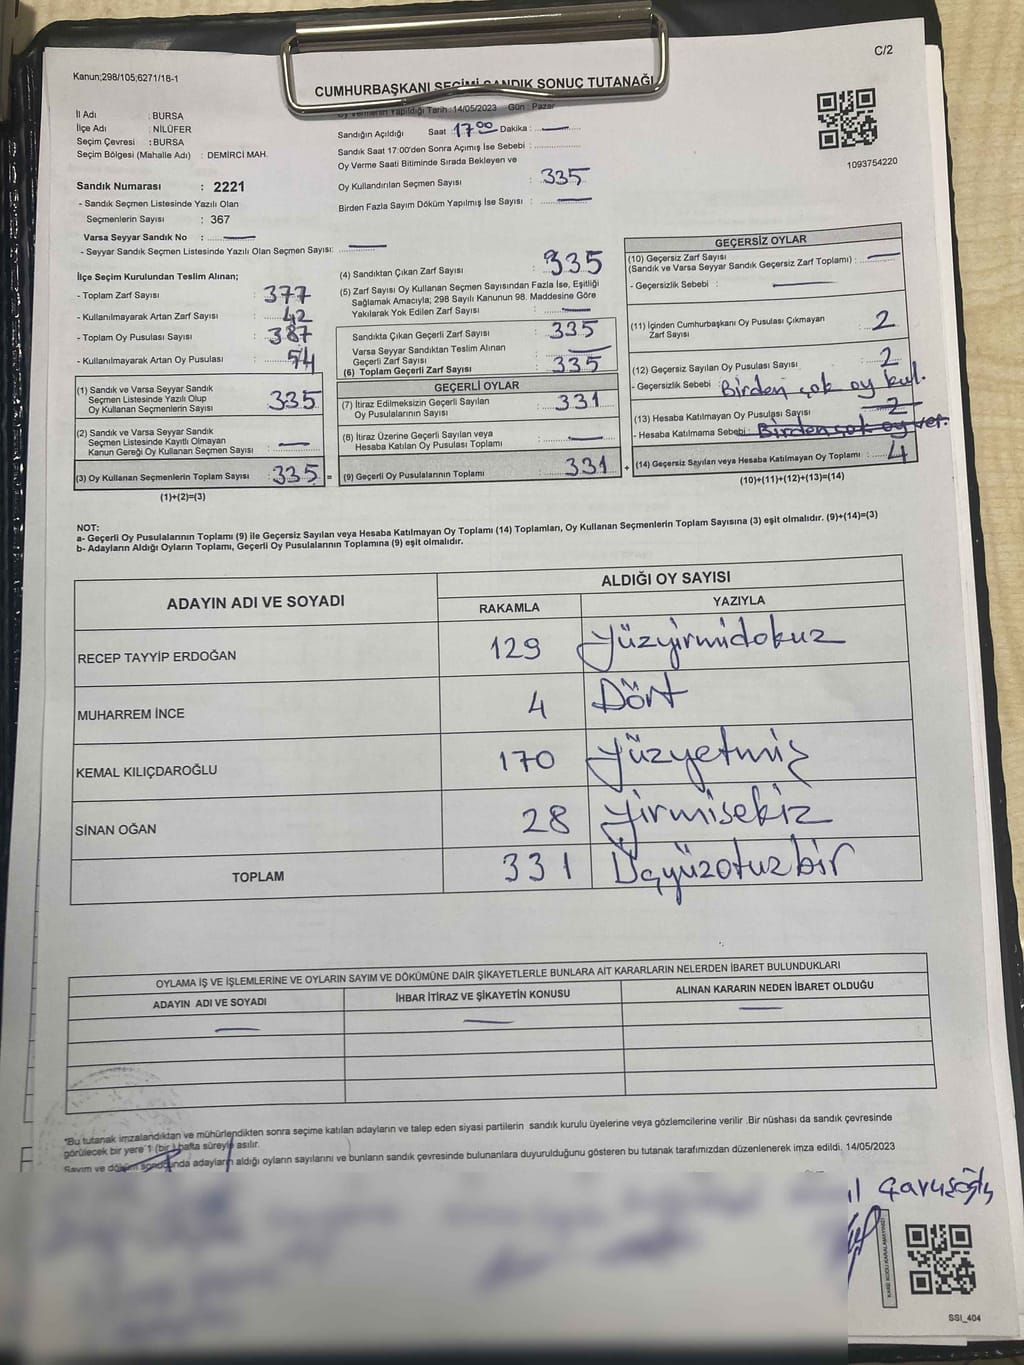 C/2
Kanun;298/105;6271/18-1
CUMHURBAŞKANI SEÇİMİ SANDIK SONUÇ TUTANAĞI
İl Adı : BURSA
İlçe Adı : NİLÜFER
Seçim Çevresi : BURSA
Seçim Bölgesi (Mahalle Adı) : DEMİRCİ MAH.
Oy Vermenin Yapıldığı Tarih : 14/05/2023 Gün : Pazar
Sandığın Açıldığı Saat : 17 00 Dakika :
Sandık Saat 17:00'den Sonra Açımış İse Sebebi :
Oy Verme Saati Bitiminde Sırada Bekleyen ve
Oy Kullandırılan Seçmen Sayısı : 335
Birden Fazla Sayım Döküm Yapılmış İse Sayısı :
1093754220
Sandık Numarası : 2221
- Sandık Seçmen Listesinde Yazılı Olan
Seçmenlerin Sayısı : 367
Varsa Seyyar Sandık No :
- Seyyar Sandık Seçmen Listesinde Yazılı Olan Seçmen Sayısı:
İlçe Seçim Kurulundan Teslim Alınan;
- Toplam Zarf Sayısı : 377
- Kullanılmayarak Artan Zarf Sayısı : 42
- Toplam Oy Pusulası Sayısı : 387
- Kullanılmayarak Artan Oy Pusulası : 54
(1) Sandık ve Varsa Seyyar Sandık
Seçmen Listesinde Yazılı Olup
Oy Kullanan Seçmenlerin Sayısı : 335
(2) Sandık ve Varsa Seyyar Sandık
Seçmen Listesinde Kayıtlı Olmayan
Kanun Gereği Oy Kullanan Seçmen Sayısı :
(3) Oy Kullanan Seçmenlerin Toplam Sayısı : 335 =
(1)+(2)=(3)
(4) Sandıktan Çıkan Zarf Sayısı : 335
(5) Zarf Sayısı Oy Kullanan Seçmen Sayısından Fazla İse, Eşitliği
Sağlamak Amacıyla; 298 Sayılı Kanunun 98. Maddesine Göre
Yakılarak Yok Edilen Zarf Sayısı :
Sandıkta Çıkan Geçerli Zarf Sayısı : 335
Varsa Seyyar Sandıktan Teslim Alınan
Geçerli Zarf Sayısı :
(6) Toplam Geçerli Zarf Sayısı : 335
GEÇERLİ OYLAR
(7) İtiraz Edilmeksizin Geçerli Sayılan
Oy Pusulalarının Sayısı : 331
(8) İtiraz Üzerine Geçerli Sayılan veya
Hesaba Katılan Oy Pusulası Toplamı :
(9) Geçerli Oy Pusulalarının Toplamı : 331 +
GEÇERSİZ OYLAR
(10) Geçersiz Zarf Sayısı
(Sandık ve Varsa Seyyar Sandık Geçersiz Zarf Toplamı) :
- Geçersizlik Sebebi :
(11) İçinden Cumhurbaşkanı Oy Pusulası Çıkmayan
Zarf Sayısı : 2
(12) Geçersiz Sayılan Oy Pusulası Sayısı : 2
- Geçersizlik Sebebi : Birden çok oy kul.
(13) Hesaba Katılmayan Oy Pusulası Sayısı : 2
- Hesaba Katılmama Sebebi : Birden çok oy ver.
(14) Geçersiz Sayılan veya Hesaba Katılmayan Oy Toplamı : 4
(10)+(11)+(12)+(13)=(14)
NOT:
a- Geçerli Oy Pusulalarının Toplamı (9) ile Geçersiz Sayılan veya Hesaba Katılmayan Oy Toplamı (14) Toplamları, Oy Kullanan Seçmenlerin Toplam Sayısına (3) eşit olmalıdır. (9)+(14)=(3)
b- Adayların Aldığı Oyların Toplamı, Geçerli Oy Pusulalarının Toplamına (9) eşit olmalıdır.
ADAYIN ADI VE SOYADI
ALDIĞI OY SAYISI
RAKAMLA YAZIYLA
RECEP TAYYİP ERDOĞAN 129 Yüzyirmidokuz
MUHARREM İNCE 4 Dört
KEMAL KILIÇDAROĞLU 170 Yüzyetmiş
SİNAN OĞAN 28 Yirmisekiz
TOPLAM 331 Üçyüzotuzbir
OYLAMA İŞ VE İŞLEMLERİNE VE OYLARIN SAYIM VE DÖKÜMÜNE DAİR ŞİKAYETLERLE BUNLARA AİT KARARLARIN NELERDEN İBARET BULUNDUKLARI
ADAYIN ADI VE SOYADI İHBAR İTİRAZ VE ŞİKAYETİN KONUSU ALINAN KARARIN NEDEN İBARET OLDUĞU
*Bu tutanak imzalandıktan ve mühürlendikten sonra seçime katılan adayların ve talep eden siyasi partilerin sandık kurulu üyelerine veya gözlemcilerine verilir .Bir nüshası da sandık çevresinde
görülecek bir yere 1 (bir) hafta süreyle asılır.
Sayım ve döküm sonucunda adayların aldığı oyların sayılarını ve bunların sandık çevresinde bulunanlara duyurulduğunu gösteren bu tutanak tarafımızdan düzenlenerek imza edildi. 14/05/2023
Çavuşoğlu
KARE KODU KARALAMAYINIZ
SSI_404